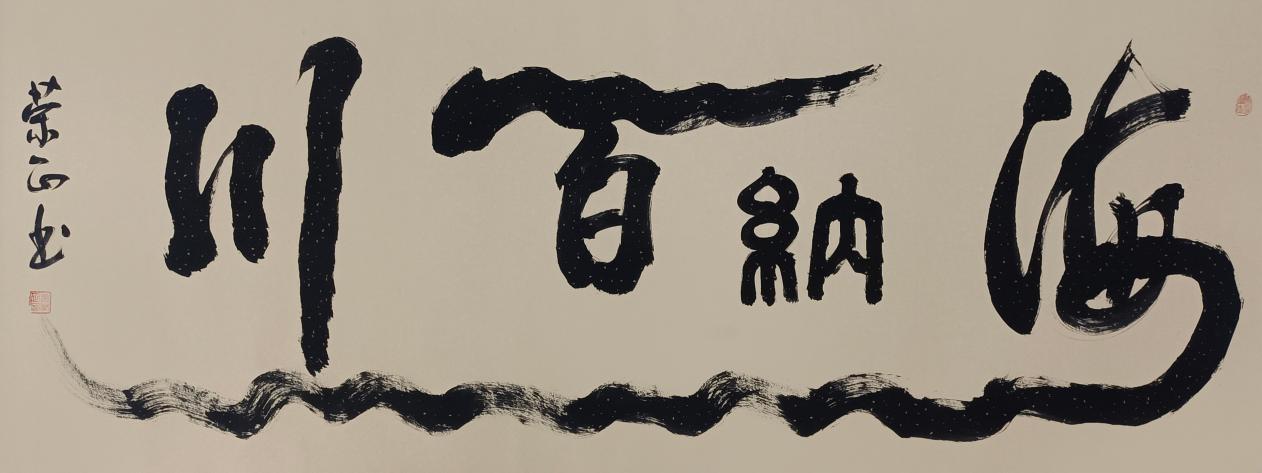 海納百川
荣正书